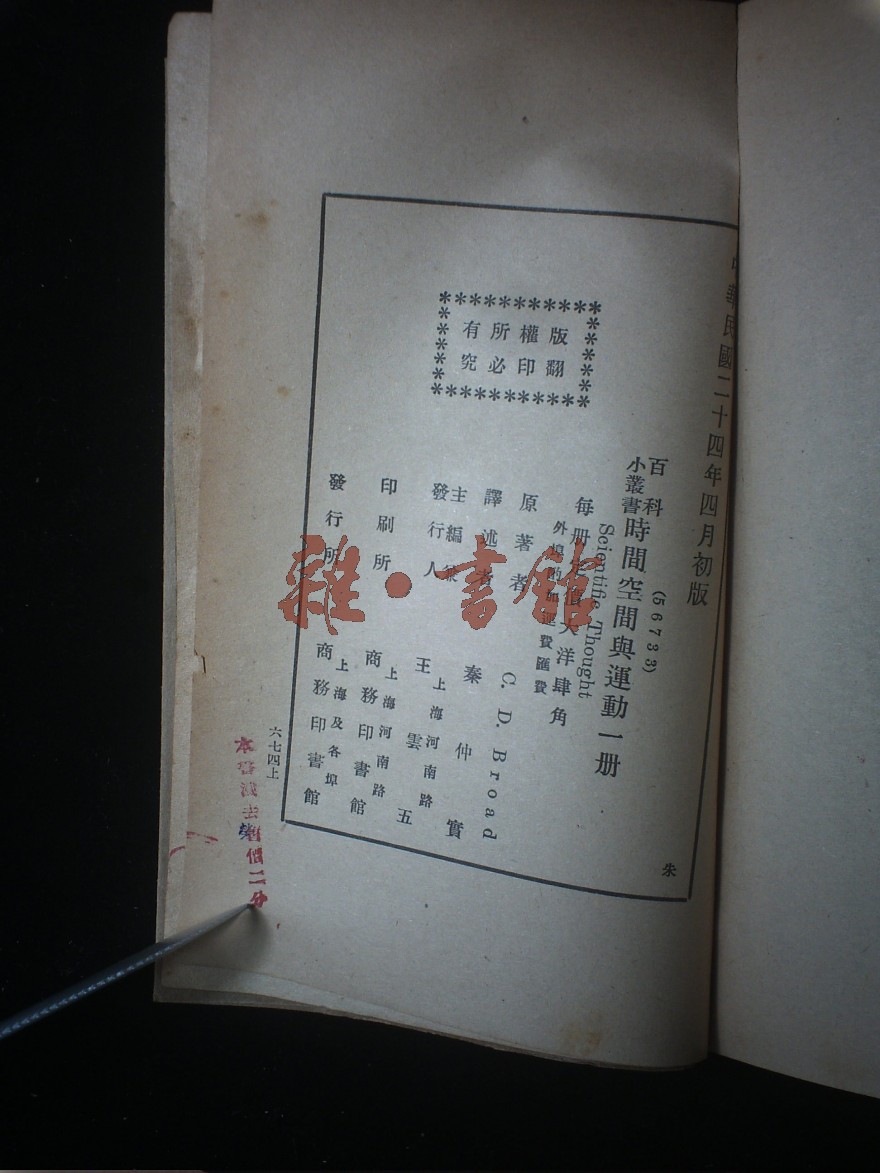 中華民國二十四年四月初版
(56733)
百科
小叢書
時間空間與運動一册
Scientific Thought
每册 價大洋肆角
外埠酌加運費匯費
原著者 C. D. Broad
譯述者 秦仲實
主編兼
發行人 王雲五
上海河南路
印刷所 商務印書館
上海河南路
發行所 商務印書館
上海及各埠
版權所有
翻印必究
朱
六七四上
本書
價二分
雜·書館